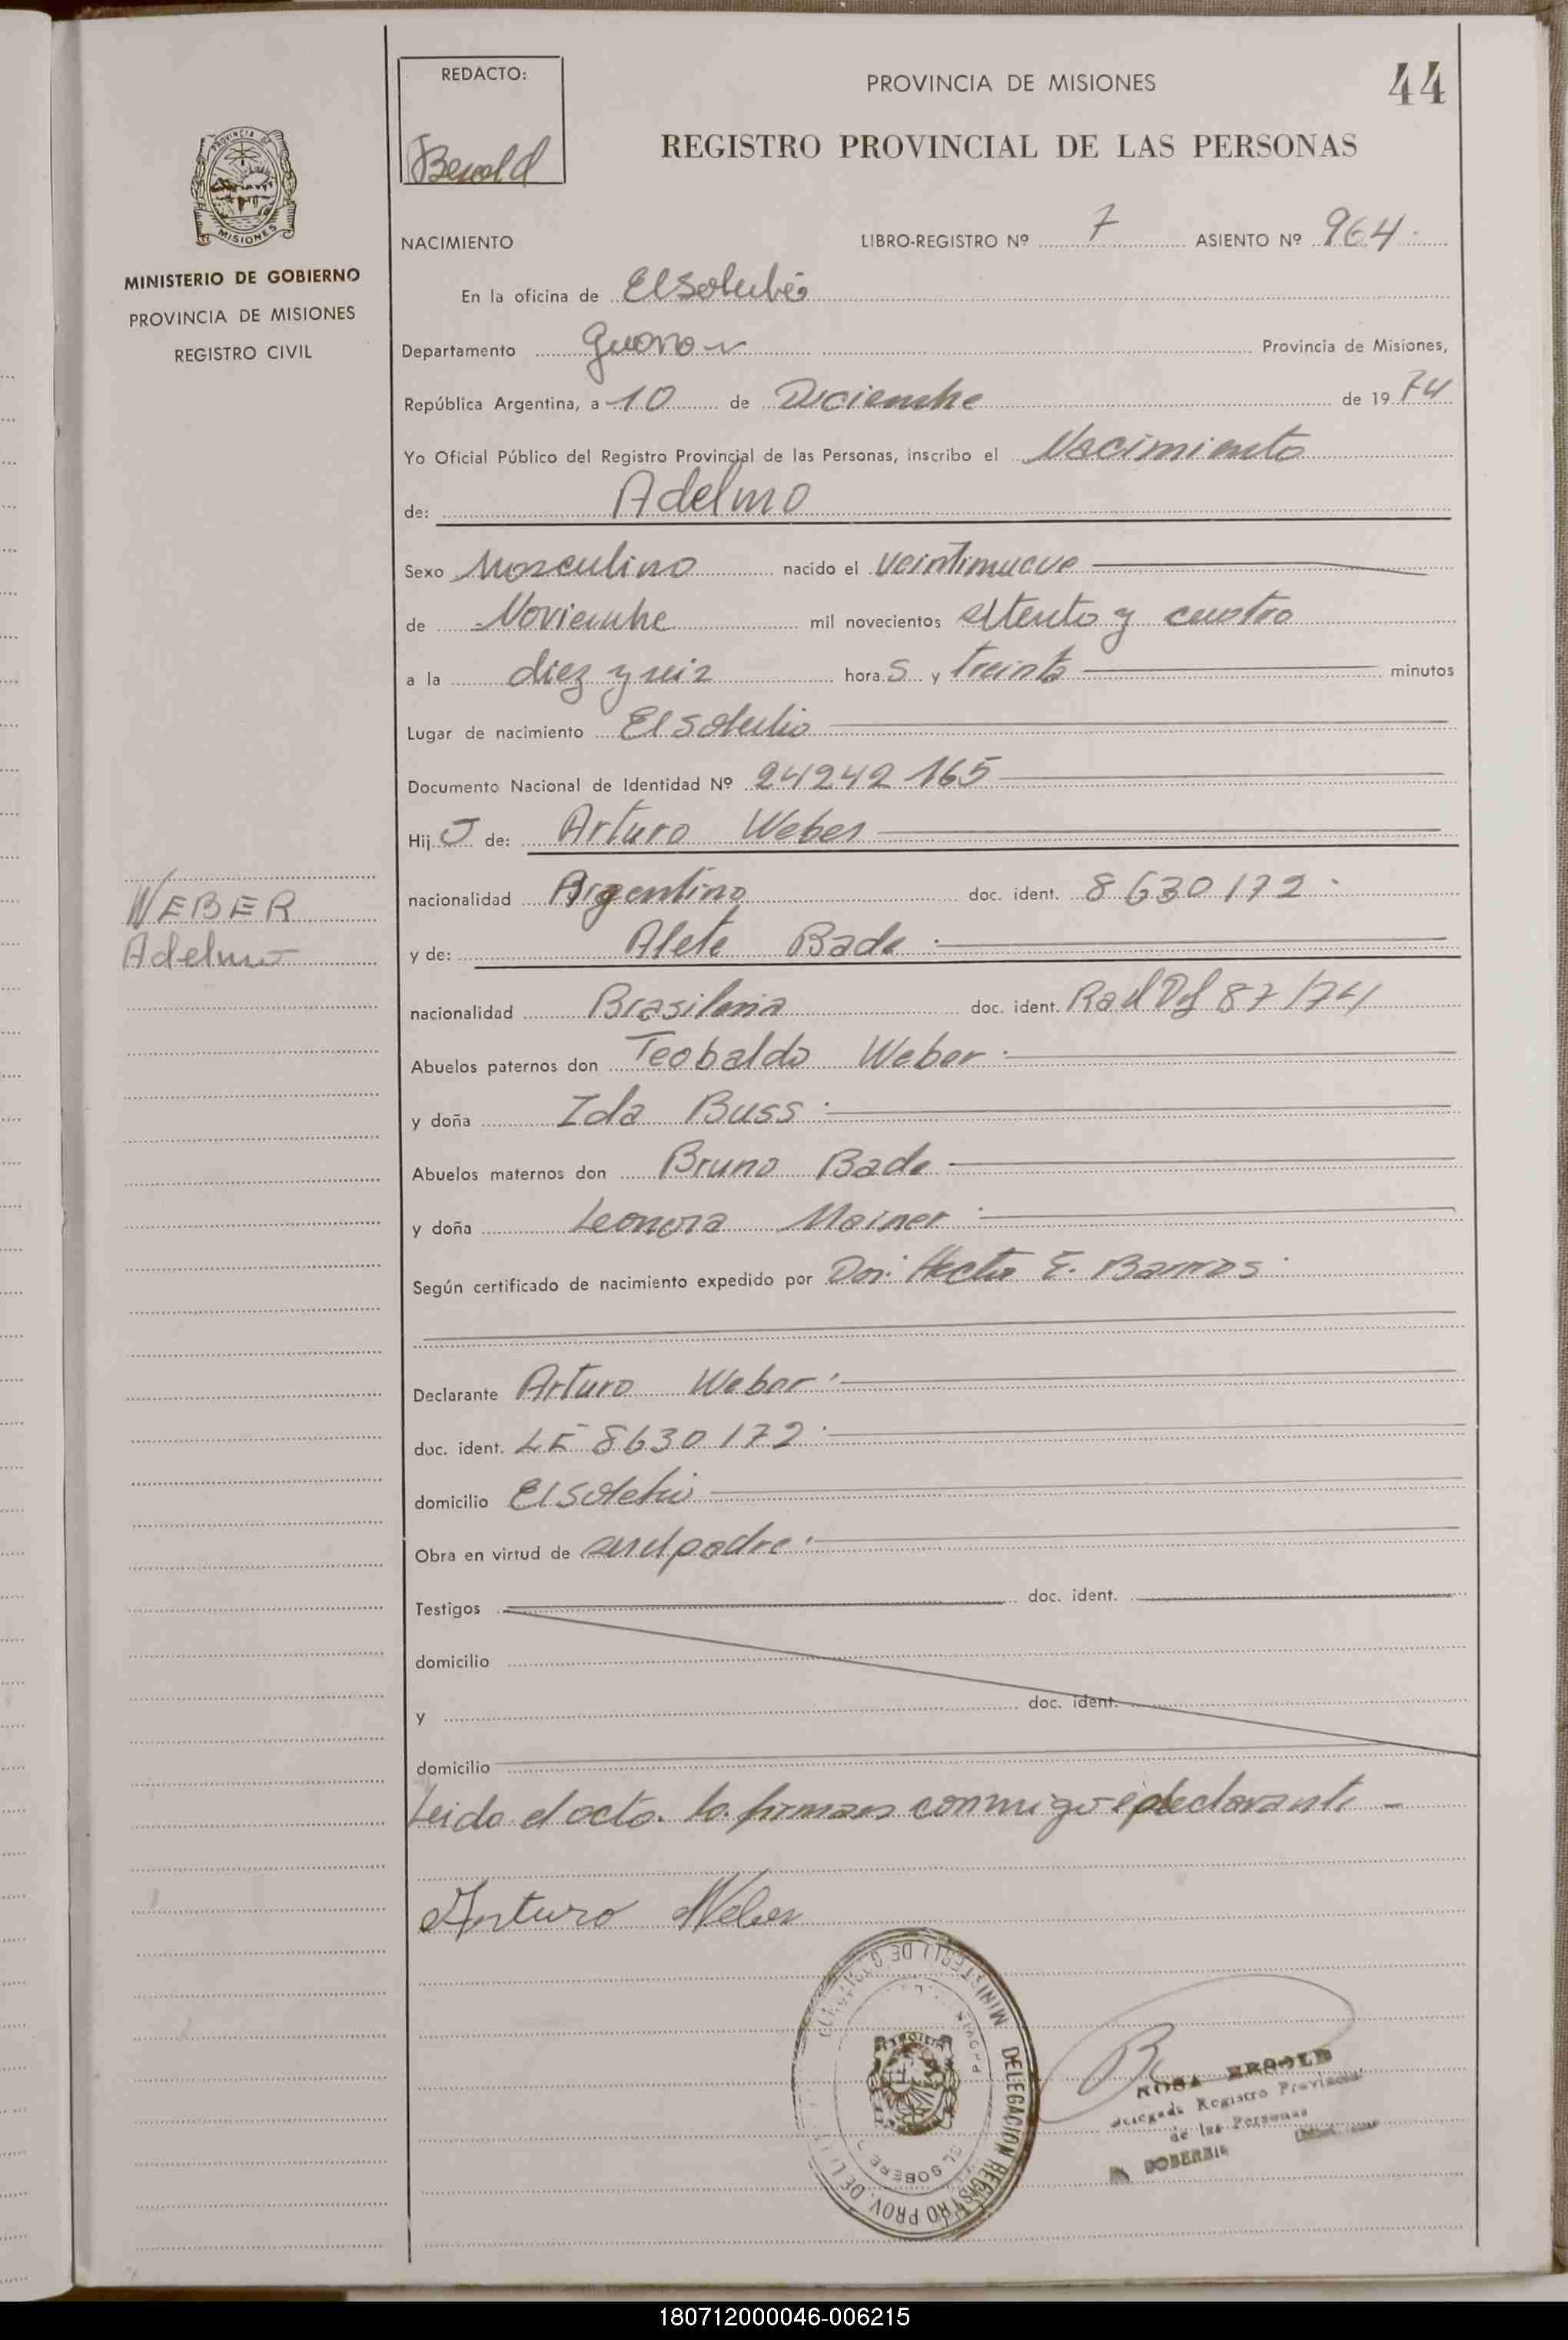 REDACTO:
PROVINCIA DE MISIONES
44
REGISTRO PROVINCIAL DE LAS PERSONAS
PROVINCIA DE
MISIONES
MINISTERIO DE GOBIERNO
PROVINCIA DE MISIONES
REGISTRO CIVIL
NACIMIENTO LIBRO-REGISTRO Nº 7 ASIENTO Nº 964.
En la oficina de El Soberbio
Departamento Guarani Provincia de Misiones,
República Argentina, a 10 de Diciembre de 1974
Yo Oficial Público del Registro Provincial de las Personas, inscribo el Nacimiento
de: Adelmo
Sexo Masculino nacido el veintinueve
de Noviembre mil novecientos setenta y cuatro
a la diez y seis horas y treinta minutos
Lugar de nacimiento El Soberbio
Documento Nacional de Identidad Nº 24242165
Hijo de: Arturo Weber
nacionalidad Argentino doc. ident. 8630172.
WEBER
Adelmo
y de: Alete Bade
nacionalidad Brasileria doc. ident. 87/74
Abuelos paternos don Teobaldo Weber
y doña Ida Buss
Abuelos maternos don Bruno Bade
y doña Leonora Mainer
Según certificado de nacimiento expedido por Hector E. Barrios
Declarante Arturo Weber
doc. ident. LE 8630172
domicilio El Soberbio
Obra en virtud de ser el padre
Testigos doc. ident.
domicilio
y doc. ident.
domicilio
Leida el acta. la firman conmigo el declarante -
Arturo Weber
MINISTERIO DE GOBIERNO
DELEGACION REGISTRO PROV. DE
EL SOBERBIO
ROSA BESOLD
Delegada Registro Provincial
de las Personas
EL SOBERBIO
180712000046-006215